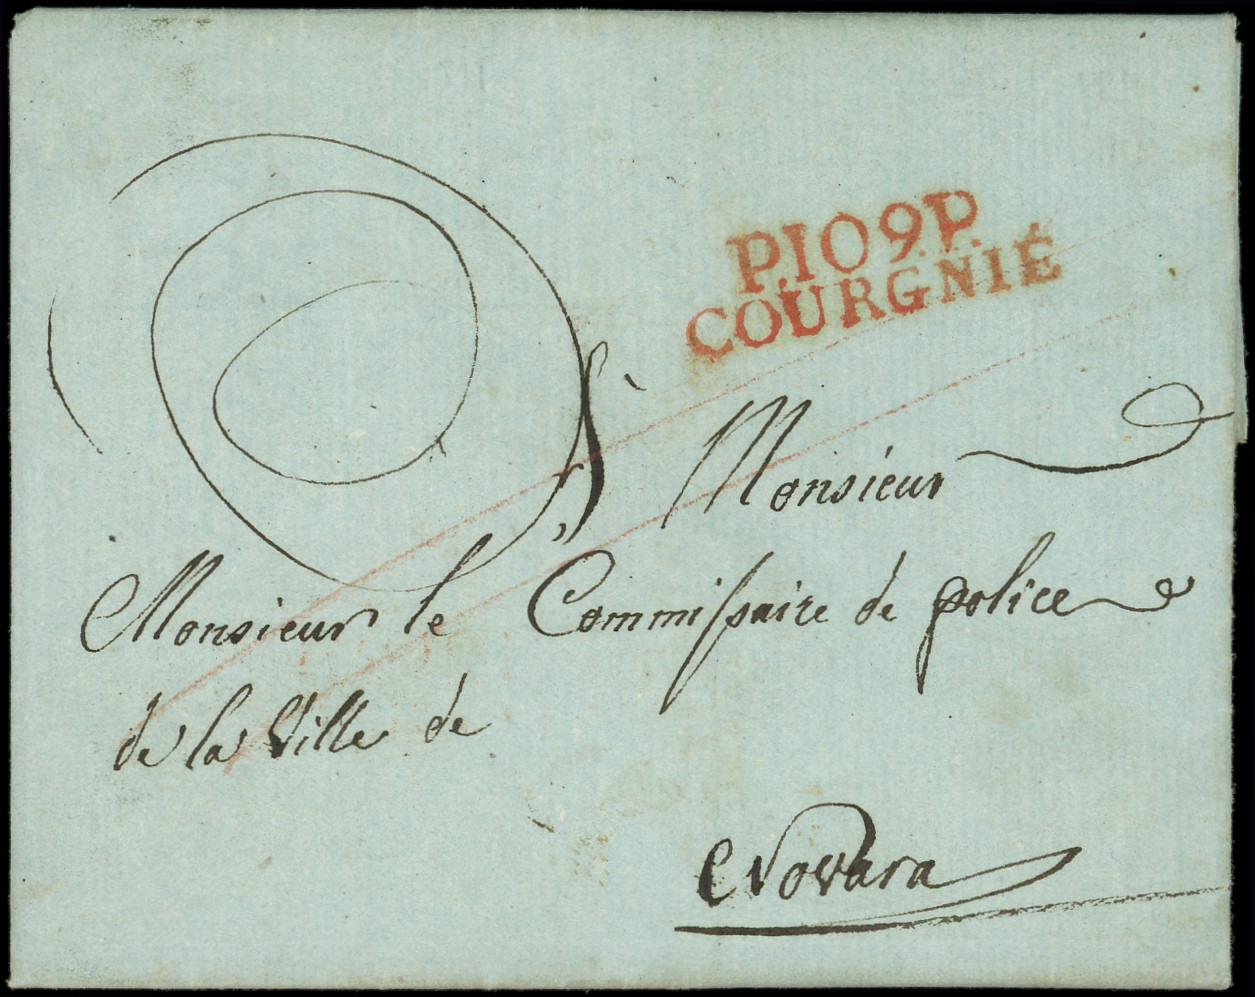 P.109.P.
COURGNIÉ
À Monsieur
Monsieur le Commissaire de police
de la Ville de
Novara